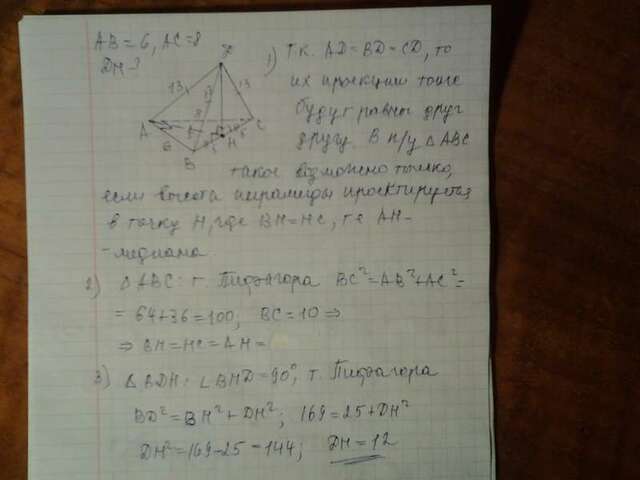 AB = 6, AC = 8
DH - ?
D
13
13
13
8
A
6
B
H
C
5
5
1) Т.К. AD = BD = CD, то
их проекции тоже
будут равны друг
другу. В п/у △ABC
такое возможно только,
если высота пирамиды проектируется
в точку H, где BH = HC, т.е AH -
- медиана
2) △ABC: т. Пифагора BC² = AB² + AC² =
= 64 + 36 = 100; BC = 10 ⇒
⇒ BH = HC = AH =
3) △BDH: ∠BHD = 90°, т. Пифагора
BD² = BH² + DH²; 169 = 25 + DH²
DH² = 169 - 25 = 144; DH = 12